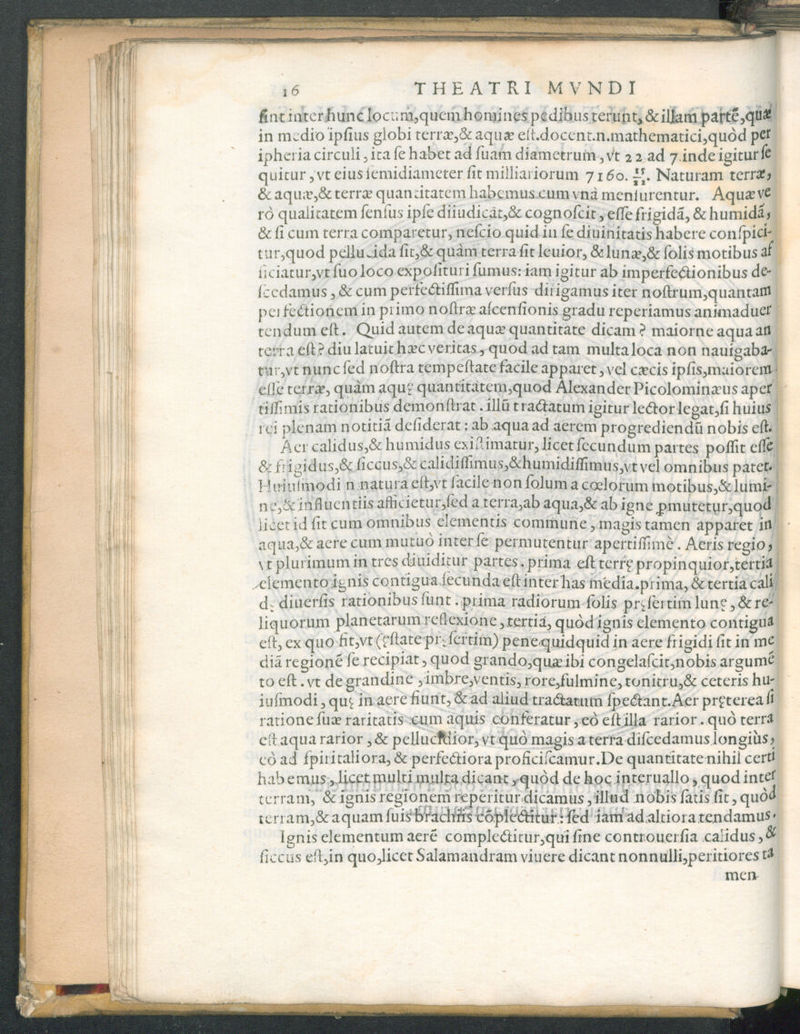 16 THEATRI MVNDI
ſint inter hunc locum,quem homines pedibus terunt,& illam partē,quæ
in medio ipſius globi terræ,& aquæ eſt.docent.n.mathematici,quòd per
ipheria circuli,ita ſe habet ad ſuam diametrum,vt 22 ad 7.inde igitur ſe
quitur,vt eius ſemidiameter ſit milliariorum 7160. Naturam terræ,
& aquæ,& terræ quantitatem habemus cum vnà menſurentur. Aquæ ve
rò qualitatem ſenſus ipſe diiudicat,& cognoſcit,eſſe frigidā,& humidā,
& ſi cum terra comparetur, neſcio quid in ſe diuinitatis habere conſpici-
tur,quod pellucida ſit,& quàm terra ſit leuior, & lunæ,& ſolis motibus af
ficiatur,vt ſuo loco expoſituri ſumus: iam igitur ab imperfectionibus de-
ſcedamus, & cum perfectiſſima verſus dirigamus iter noſtrum,quantam
perfectionem in primo noſtræ aſcenſionis gradu reperiamus animaduer
tendum eſt. Quid autem de aquæ quantitate dicam? maiorne aqua an
terra eſt? diu latuit hæc veritas, quod ad tam multa loca non nauigaba-
tur,vt nunc ſed noſtra tempeſtate facile apparet, vel cæcis ipſis,maiorem
eſſe terræ, quàm aquę quantitatem,quod Alexander Picolominæus aper
tiſſimis rationibus demonſtrat. illū tractatum igitur lector legat,ſi huius
rei plenam notitiā deſiderat: ab aqua ad aerem progrediendū nobis eſt.
Aer calidus,& humidus exiſtimatur, licet ſecundum partes poſſit eſſe
& frigidus,& ſiccus,& calidiſſimus,&humidiſſimus,vt vel omnibus patet.
Huiuſmodi n natura eſt,vt facile non ſolum a cœlorum motibus,& lumi-
ne,& influentiis afficietur,ſed a terra,ab aqua,& ab igne ꝑmutetur,quod
licet id ſit cum omnibus elementis commune, magis tamen apparet in
aqua,& aere cum mutuò inter ſe permutentur apertiſſimè. Aeris regio,
vt plurimum in tres diuiditur partes. prima eſt terrę propinquior,tertia
elemento ignis contigua ſecunda eſt inter has media.prima, & tertia cali
dę diuerſis rationibus ſunt. prima radiorum ſolis pręſertim lunę, & re-
liquorum planetarum reflexione, tertia, quòd ignis elemento contigua
eſt, ex quo fit,vt (ęſtate pręſertim) pene quidquid in aere frigidi ſit in me
diā regionē ſe recipiat, quod grando,quæ ibi congelaſcit,nobis argumē
to eſt. vt de grandine, imbre,ventis, rore,fulmine, tonitru,& ceteris hu-
iuſmodi, quę in aere fiunt, & ad aliud tractatum ſpectant.Aer pręterea ſi
ratione ſuæ raritatis cum aquis conferatur, eò eſt illa rarior. quò terra
eſt aqua rarior, & pellucidior, vt quò magis a terra diſcedamus longiùs,
eò ad ſpiritaliora, & perfectiora proficiſcamur.De quantitate nihil certi
habemus, licet multi multa dicant, quòd de hoc interuallo, quod inter
terram, & ignis regionem reperitur dicamus, illud nobis ſatis ſit, quòd
terram,& aquam ſuis brachiis cōplectitur: ſed iam ad altiora tendamus.
Ignis elementum aerē complectitur,qui ſine controuerſia calidus, &
ſiccus eſt,in quo,licet Salamandram viuere dicant nonnulli,peritiores ta
men